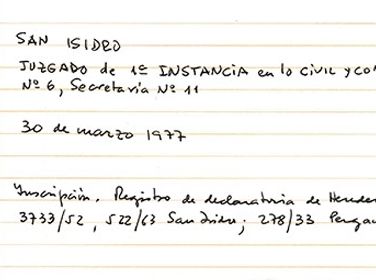 SAN ISIDRO
JUZGADO de 1ª INSTANCIA en lo CIVIL y CO
Nº 6, Secretaría Nº 11
30 de marzo 1977
Inscripción. Registro de declaratoria de Hered
3733/52, 522/63 San Isidro; 278/33 Perga